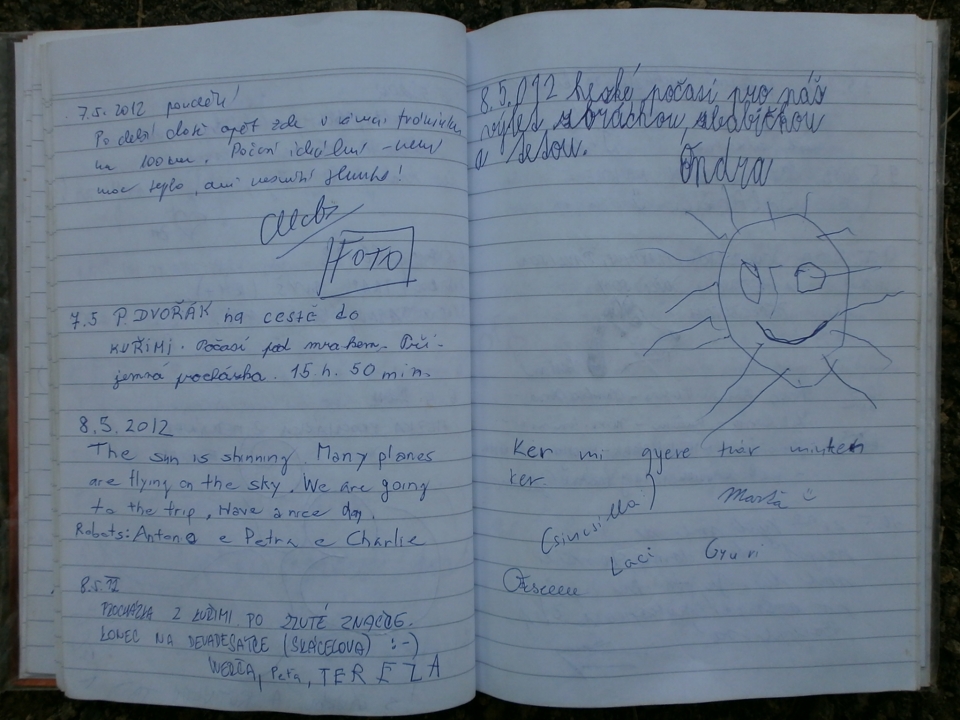 7.5. 2012 pondělí!
Po delší době opět zde v rámci tréninku
na 100 km. Počasí ideální – není
moc teplo, ani nesvítí slunko!
FOTO
7.5 P. DVOŘÁK na cestě do
KUŘIMI. Počasí pod mrakem. Pří-
jemná procházka. 15 h. 50 min.
8.5. 2012
The sun is shinning. Many planes
are flying on the sky. We are going
to the trip, Have a nice day.
Robots: Antono e Petra e Charlie
8.5.12
PROCHÁZKA Z KUŘIMI PO ŽLUTÉ ZNAČCE.
KONEC NA DEVADESÁTCE (SKÁCELOVA) :-)
Peťa, TEREZA
8.5.012 hezké počasí pro náš
výlet, s bráchou, s babičkou
a tetou.
Ondra
Ker mi gyere
ker
(sincsilla)
Laci Gyuri